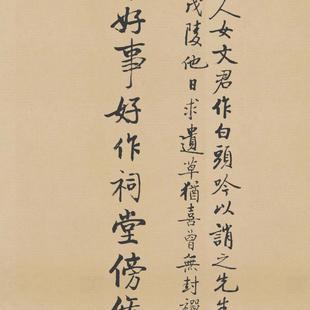 人女文君作白頭吟以誚之先生
茂陵他日求遺草猶喜曾無封禪
好事好作祠堂傍修